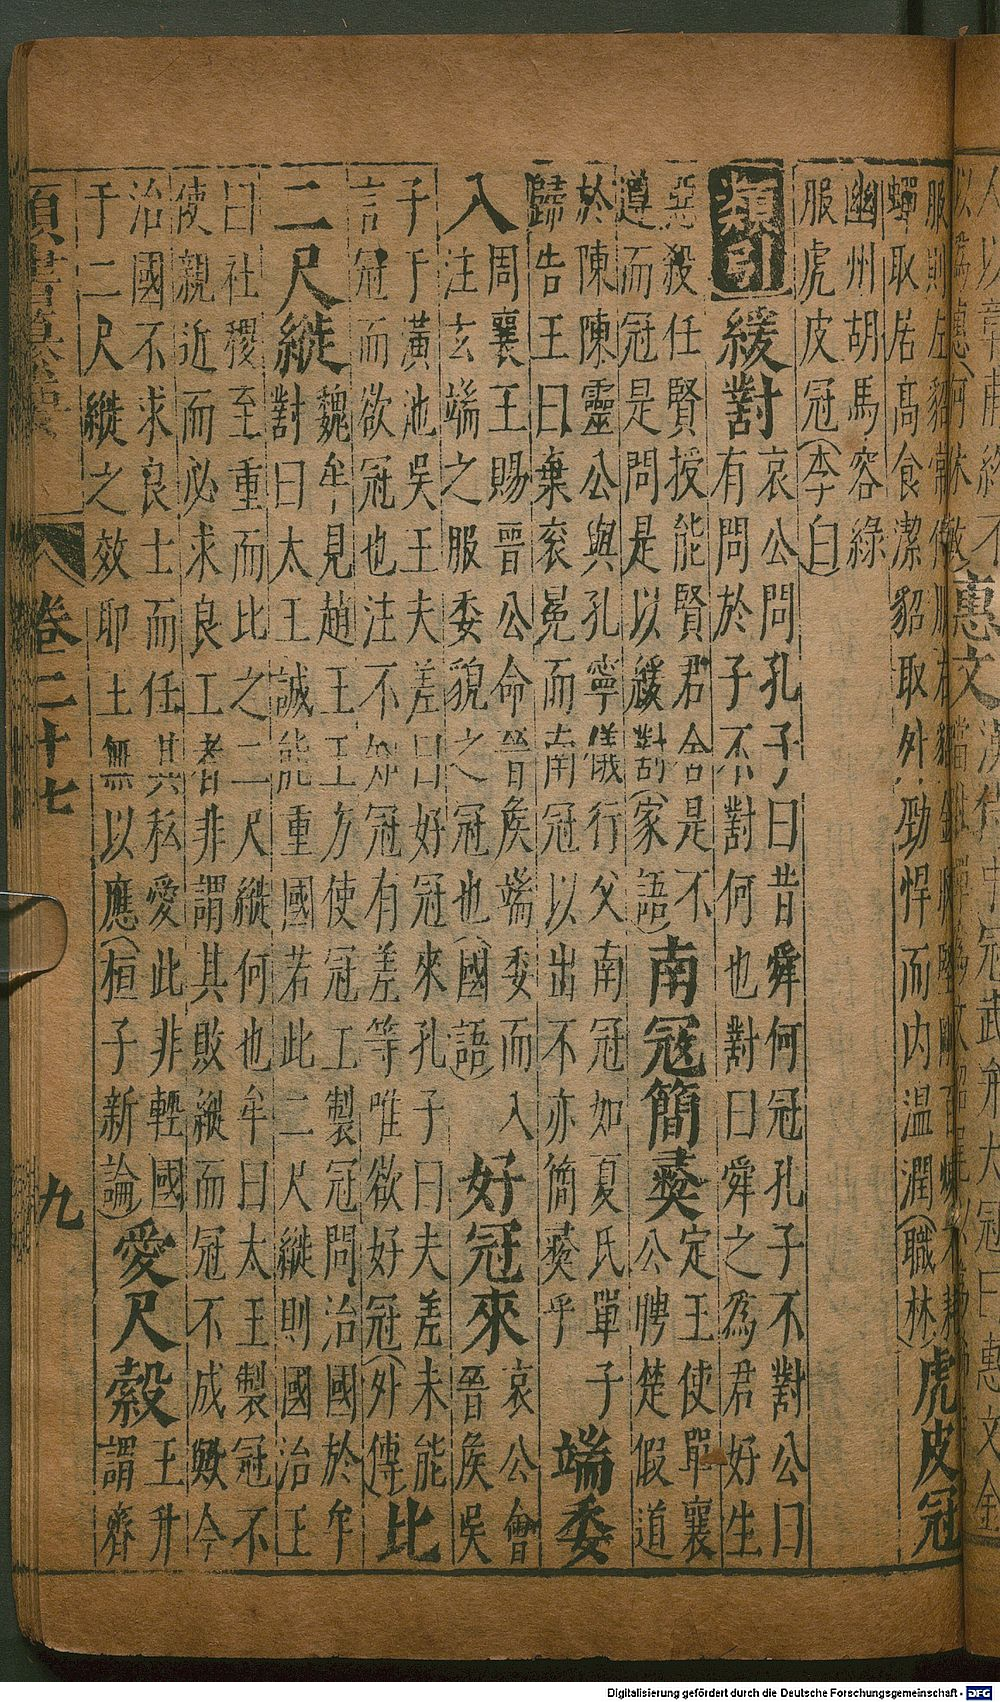 服則左貂常侍服右貂金取堅剛百煉不耗
蟬取居高食潔貂取外勁悍而内温潤(職林)
虎皮冠
幽州胡馬容綠
服虎皮冠(李白)
類引
緩對
哀公問孔子曰昔舜何冠孔子不對公曰
有問於子不對何也對曰舜之為君好生
惡殺任賢授能賢君舍是不
遵而冠是問是以緩對(家語)
南冠簡㚇
定王使單襄
公聘楚假道
於陳陳靈公與孔寧儀行父南冠如夏氏單子
歸告王曰棄衮冕而南冠以出不亦簡㚇乎
端委
入
周襄王賜晉公命晉侯端委而入
注玄端之服委貌之冠也(國語)
好冠來
哀公會
晉侯吳
子于黃池吳王夫差曰好冠來孔子曰夫差未能
言冠而欲冠也注不知冠有差等唯欲好冠(外傳)
比
二尺縰
魏牟見趙王王方使冠工製冠問治國於牟
對曰太王誠能重國若此二尺縰則國治王
曰社稷至重而比之二尺縰何也牟曰太王製冠不
使親近而必求良工者非謂其敗縰而冠不成歟今
治國不求良士而任其私愛此非輕國
于二尺縰之效耶王無以應(桓子新論)
愛尺縠
王升
謂齊
卷二十七
九
Digitalisierung gefördert durch die Deutsche Forschungsgemeinschaft - DFG